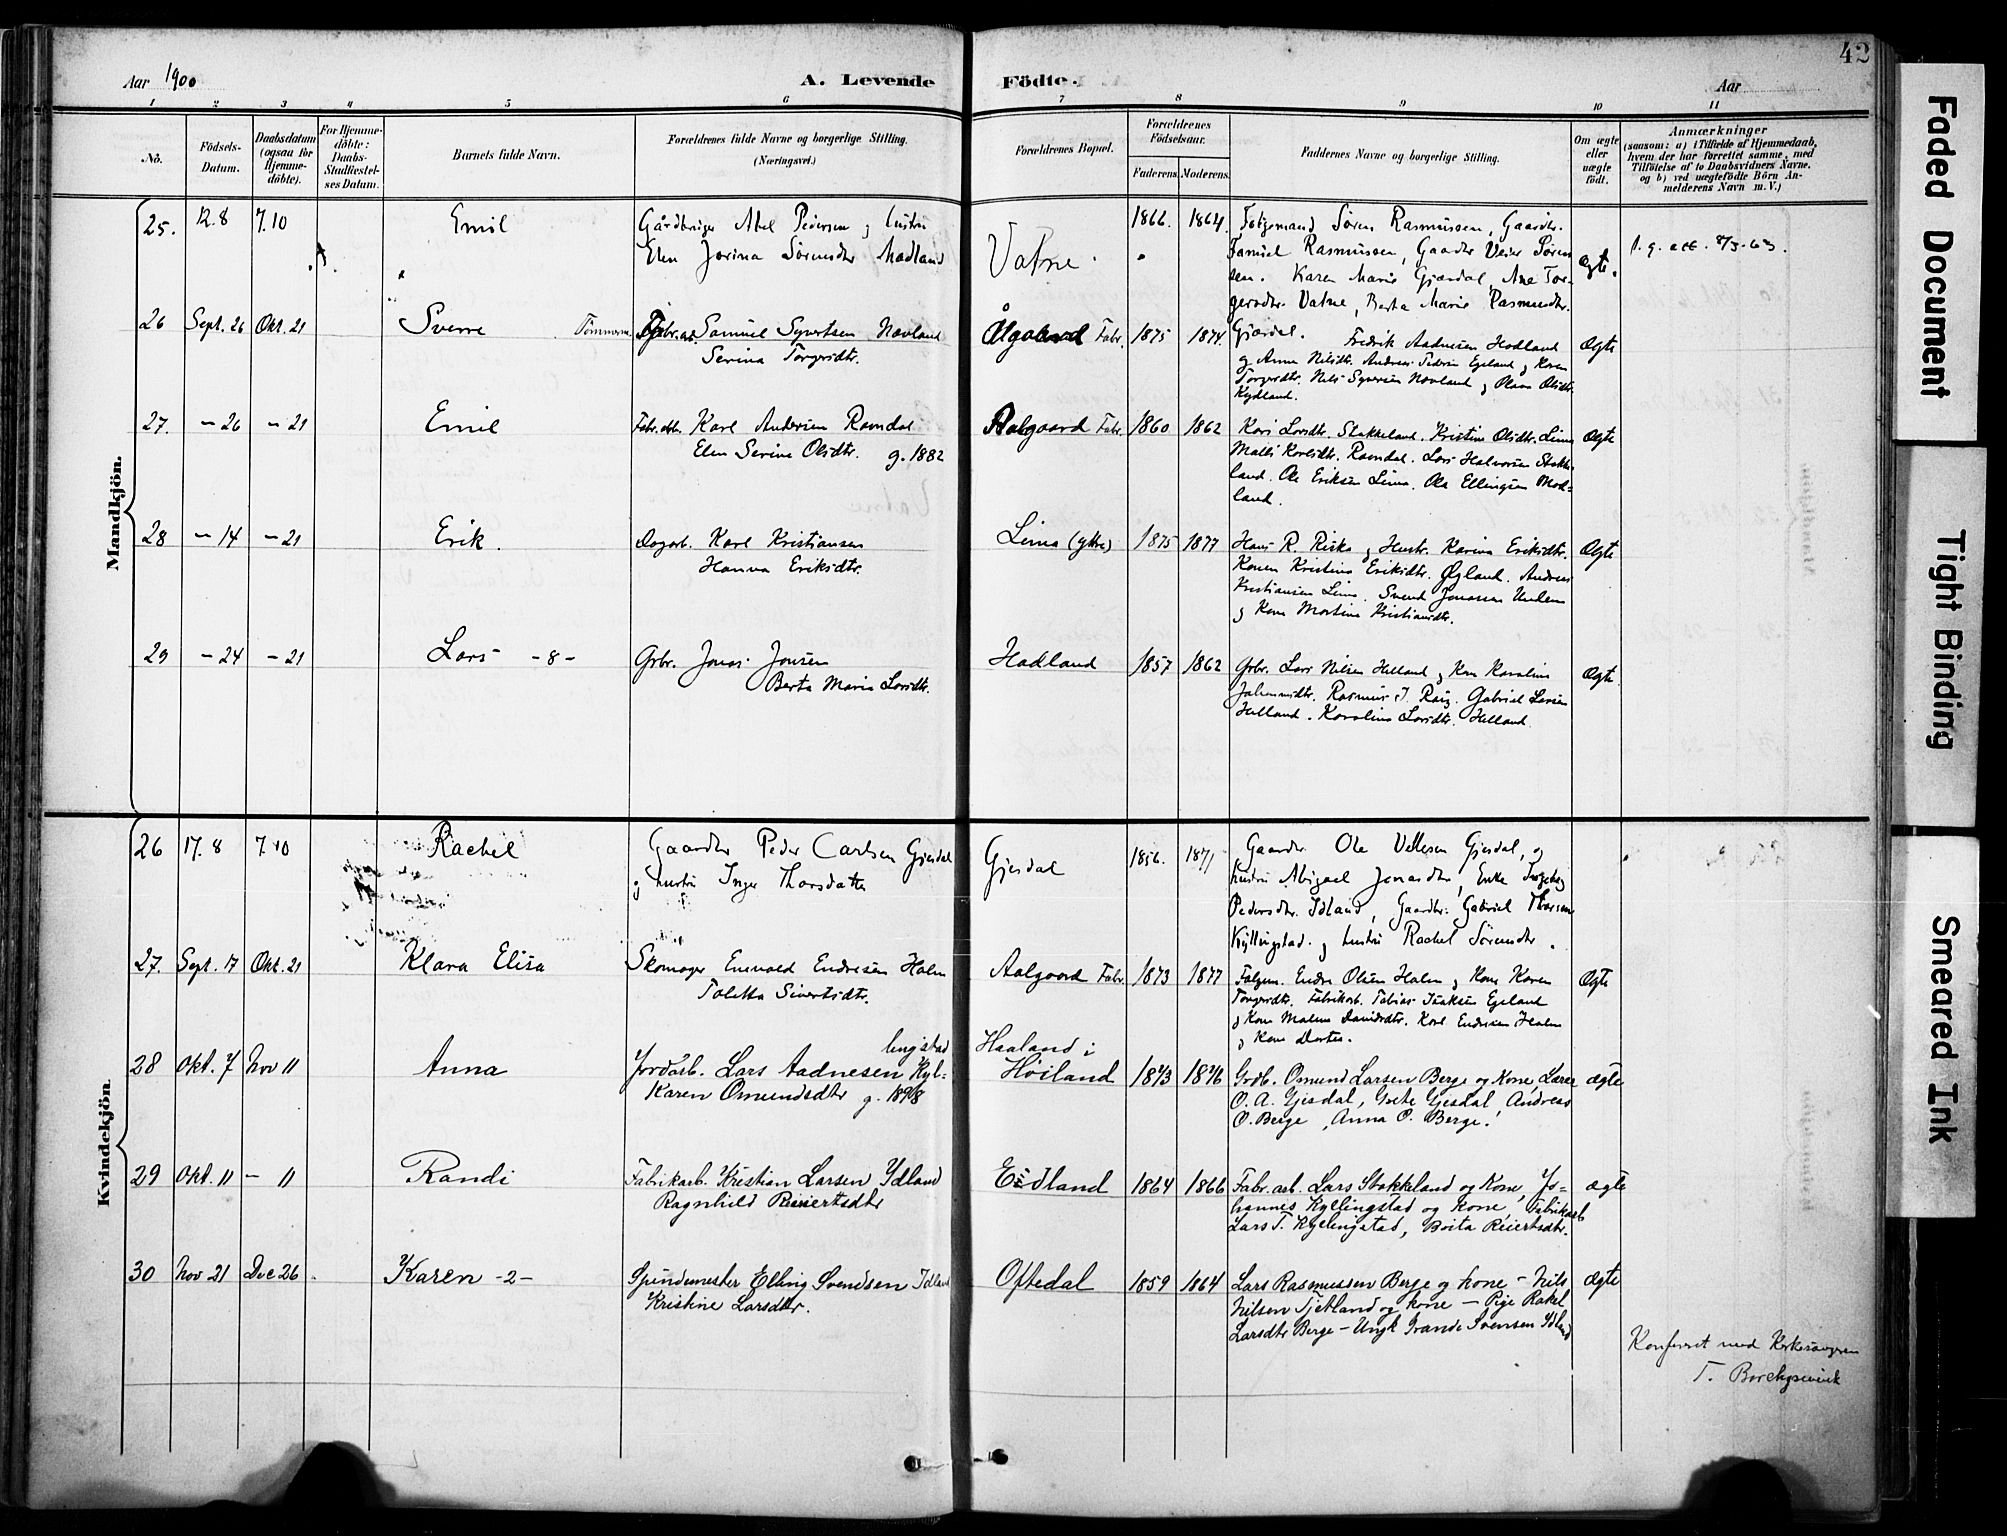 42
Aar 1900
A. Levende Födte.
Aar
1 2 3 4 5 6 7 8 9 10 11
No.
Födsels-Datum.
Daabsdatum (ogsaa for Hjemmedöbte).
For Hjemmedöbte: Daabs-Stadfæstelses Datum.
Barnets fulde Navn.
Forældrenes fulde Navne og borgerlige Stilling.
(Næringsvei.)
Forældrenes Bopæl.
Forældrenes Födselsaar.
Faderens. Moderens.
Faddernes Navne og borgerlige Stilling.
Om ægte eller uægte födt.
Anmærkninger
(saasom: a) i Tilfælde af Hjemmedaab,
hvem der har forrettet samme, med
Tilföielse af to Daabsvidners Navne,
og b) ved uægtefödte Börn An-
melderens Navn m. V.)
Mandkjön.
25. 12.8 7.10 Emil
Gårdbruger Abel Pedersen og hustru
Elen Jorina Sørensdtr Madland
Vatne 1866. 1864.
Søren Rasmussen, Gaardbr.
Samuel Rasmussen, Gaardbr Veier Søren
sen. Karen Marie Gjærdal, Ane Tor-
gersdtr. Vatne, Berta Marie Rasmusdtr.
Gjærdal.
Ægte.
26 Sept. 26 Okt. 21 Sverre
Samuel Syvertsen Navland
Serina Torgersdtr.
Ålgaard Fabr. 1875 1874.
Fredrik Aadnesen Hodland
og Anna Nilsdtr. Andreas Pedersen Egeland og Kone
Torgersdtr. Nils Syversen Navland og Olava Olsdtr.
Kydland.
Ægte
27. - 26 - 21 Emil
Fabr.arb. Karl Andersen Ramdal
Elen Serine Olsdtr. g. 1882
Aalgaard Fabr. 1860 1862
Kari Larsdtr. Stokkeland. Kristine Olsdtr. Lima
Malli Karlsdtr. Ramdal. Lars Halvorsen Stokke-
land. Ole Eriksen Lima. Ole Ellingsen Mad-
land.
Ægte
28 - 14 - 21 Erik.
Dagarb. Karl Kristiansen
Hanna Eriksdtr.
Lima (ytre) 1875 1877
Hans R. Riska og Hustr. Karina Eriksdtr.
Konen Kristina Eriksdtr. Øgland. Andreas
Kristiansen Lima. Svend Jonassen
og Kone Martine Kristiansdtr.
Ægte
29 - 24 - 21 Lars -8-
Grbr. Jonas Jonsen
Berta Maria Larsdtr.
Hadland 1857 1862
Grbr. Lars Nilsen Helland og Kone Karoline
Johannesdtr. Rasmus J. Gabriel Larsen
Helland. Karoline Larsdtr. Helland
Ægte.
Kvindekjön.
26 17.8 7.10 Rachel
Gaardbr Peder Carlsen Gjesdal
og hustru Inger Thorsdatter
Gjesdal 1856. 1871
Gaardbr. Ole Vellesen Gjesdal, og
hustru Abigael Jonasdtr, Enke Ingeborg
Pedersdtr. Idland, Gaardbr. Gabriel Thorsen
Kyllingstad. og hustru Rachel Sørensdtr.
27. Sept. 17 Okt. 21 Klara Elisa
Skomager Enevald Endresen Halm
Toletta Sivertsdtr.
Aalgaard Fabr. 1873 1877
Endre Olsen Halm og Kone Karen
Torgersdtr. Fabrikarb. Tobias Isaksen Egeland
og Kone Malene Davidsdtr. Karl Endresen Halm
og Kone Dortea.
Ægte
28 Okt. 7 Nov 11 Anna
lingstad
Jordarb. Lars Aadnesen Kyl-
Karen Omundsdtr g. 1898
Haaland i
Høiland 1873 1876
Grdb. Omund Larsen Berge og Kone, Lærer
O. A. Gjesdal, Grete Gjesdal, Andreas
O. Berge, Anna O. Berge.
ægte
29 Okt. 11 - 11 Randi
Fabrikarb. Kristian Larsen Ydland
Ragnhild Reiertsdtr
Eidland 1864 1866
Fabr. arb. Lars Stokkeland og Kone, Jo=
hannes Kyllingstad og Kone, Fabrikarb
Lars T. Kyllingstad, Berta Reiertsdtr.
ægte
30 Nov 21 Dec 26 Karen -2-
Spindemester Elling Svendsen Idland
Kristine Larsdtr.
Oftedal 1859 1864
Lars Rasmussen Berge og kone - Nils
Nilsen Tjetland og kone - Pige Rakel
Larsdtr Berge - Ungk Svensen Ydland
ægte
Konferert med Kirkesangeren
T. Borchgrevink
Faded Document
Tight Binding
Smeared Ink